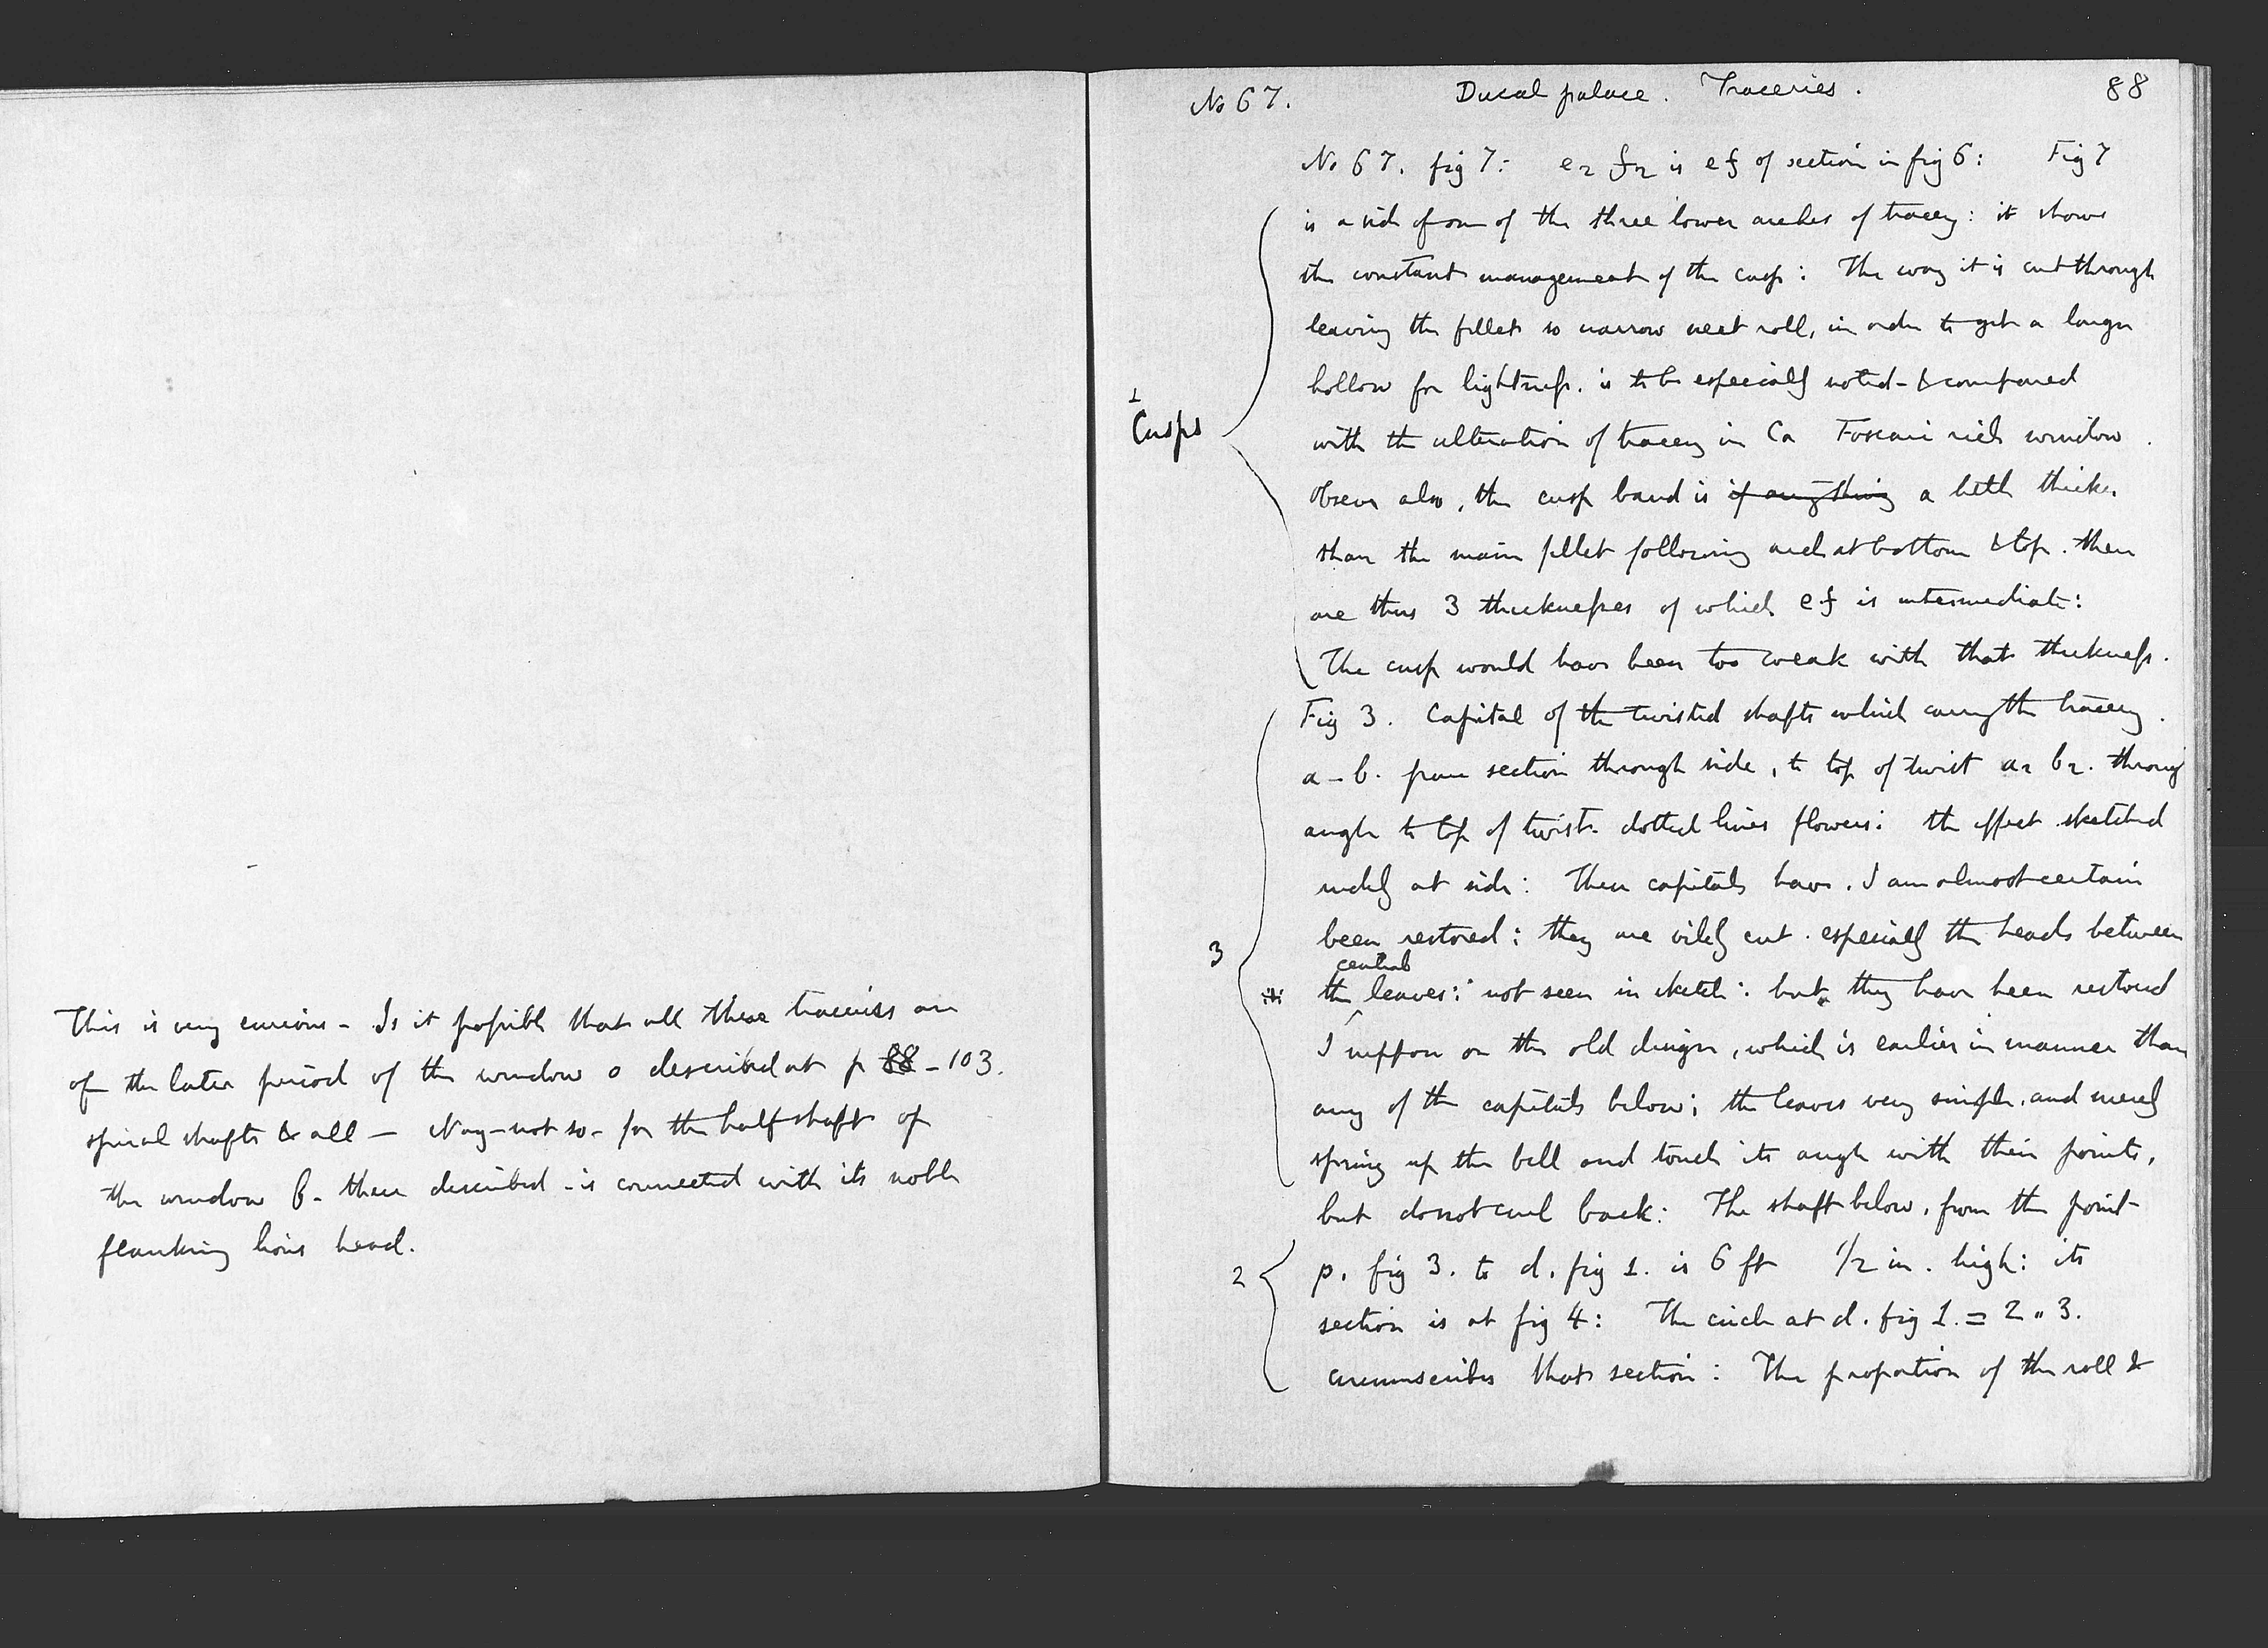 This is very curious - Is it possible that all these traceries are
of the later period of the window o described at p 88 - 103.
spiral shafts & all - Nay - not so - for the half shaft of
the window β - there described - is connected with its noble
flanking lions head.
No 67. Ducal palace. Traceries. 88
No 67. fig 7: e2 f2 is e f of section in fig 6: Fig 7
is a side of one of the three lower arches of tracery: it shows
the constant management of the cusp: The way it is cut through
leaving the fillet so narrow next roll, in order to get a larger
hollow for lightness. is to be especially noted - & compared
1
Cusps
with the alteration of tracery in Ca Foscari rich window.
Observe also, the cusp band is if anything a little thicker
than the main fillet following arch at bottom & top. there
are thus 3 thicknesses of which e f is intermediate:
The cusp would have been too weak with that thickness.
Fig 3. Capital of the twisted shafts which carry the tracery.
a - b. pure section through side, to top of twist a2 b2. through
angle to top of twist. dotted lines flowers: the effect sketched
rudely at side: These capitals have. I am almost certain
3
been restored: they are vilely cut. especially the heads between
central
the leaves: not seen in sketch: but they have been restored
I suppose on the old design, which is earlier in manner than
any of the capitals below; the leaves very simple. and merely
spring up the bell and touch its angle with their points,
but do not curl back: The shaft below, from the point
2
p. fig 3. to d. fig 1. is 6 ft 1/2 in. high: its
section is at fig 4: The circle at d. fig 1. = 2 " 3.
circumscribes that section: The proportion of the roll &